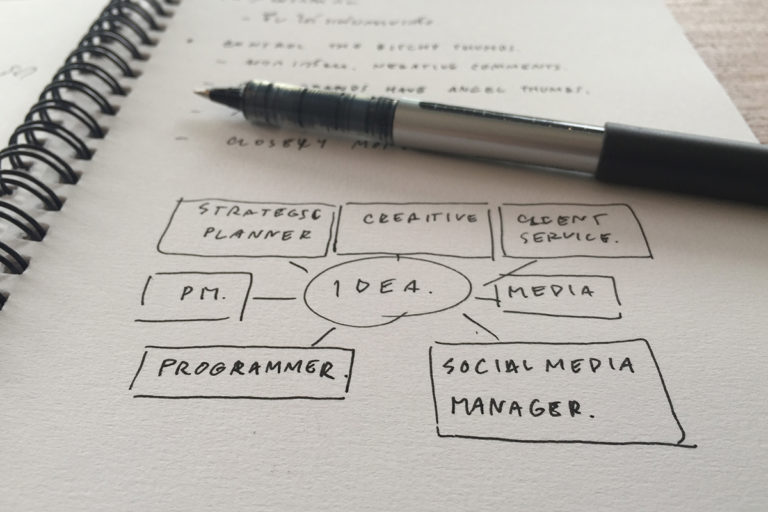 CONTROL THE BITCHY THUMBS.
NEGATIVE COMMENTS.
HAVE ANGEL THUMBS.
CLOSELY
STRATEGIC
PLANNER
CREAITIVE
CLIENT
SERVICE.
PM.
IDEA.
MEDIA
PROGRAMMER.
SOCIAL MEDIA
MANAGER.